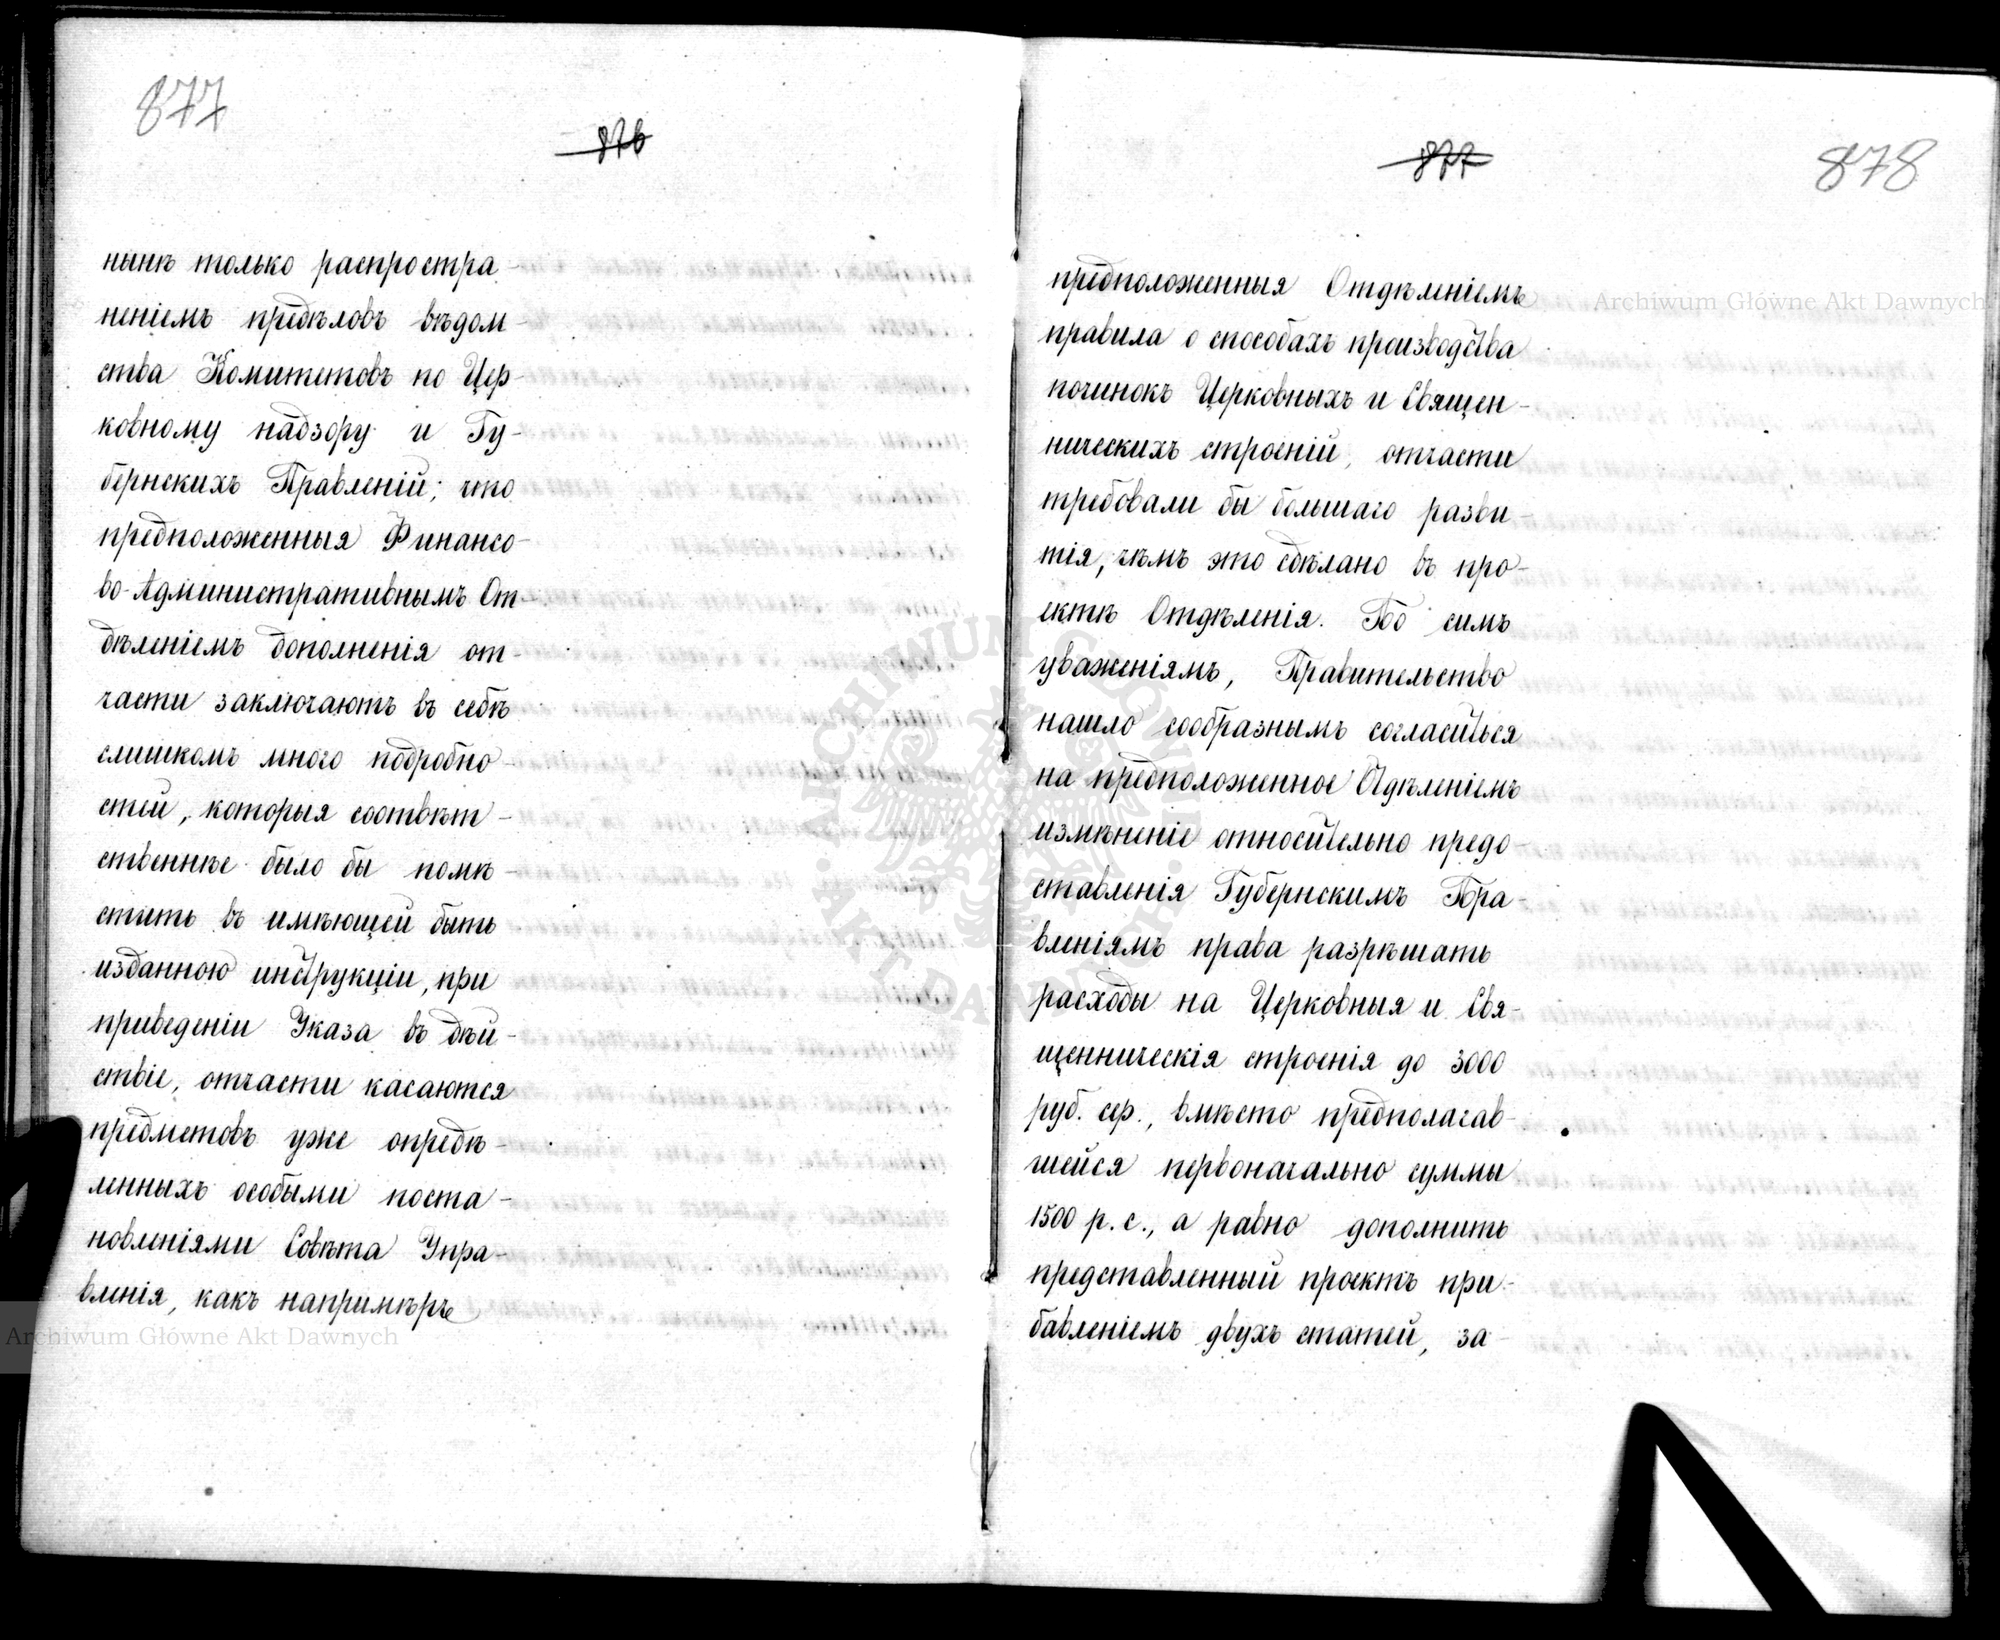 877
876
нынѣ только распростра-
неніемъ предѣловъ вѣдом-
ства Комитетовъ по Цер-
ковному надзору и Гу-
бернскихъ Правленій; что
предположенныя Финансо-
во-Административнымъ От-
дѣленіемъ дополненія от-
части заключаютъ въ себѣ
слишкомъ много подробно-
стей, которыя соотвѣт-
ственнѣе было бы помѣ-
стить въ имѣющей быть
изданною инструкціи, при
приведеніи Указа въ дѣй-
ствіе, отчасти касаются
предметовъ уже опредѣ-
ленныхъ особыми поста-
новленіями Совѣта Упра-
вленія, какъ напримѣръ
877
878
предположенныя Отдѣленіемъ
правила о способахъ производства
починокъ Церковныхъ и Священ-
ническихъ строеній, отчасти
требовали бы большаго разви-
тія, чѣмъ это сдѣлано въ про-
ектѣ Отдѣленія. По симъ
уваженіямъ, Правительство
нашло сообразнымъ согласиться
на предположенное Отдѣленіемъ
измѣненіе относительно предо
ставленія Губернскимъ Пра-
вленіямъ права разрѣшать
расходы на Церковныя и Свя-
щенническія строенія до 3000
руб. сер., вмѣсто предполагав-
шейся первоначально суммы
1500 р. с., а равно дополнить
представленный проектъ при-
бавленіемъ двухъ статей, за-
Archiwum Główne Akt Dawnych
Archiwum Główne Akt Dawnych
ARCHIWUM GŁÓWNE
AKT DAWNYCH